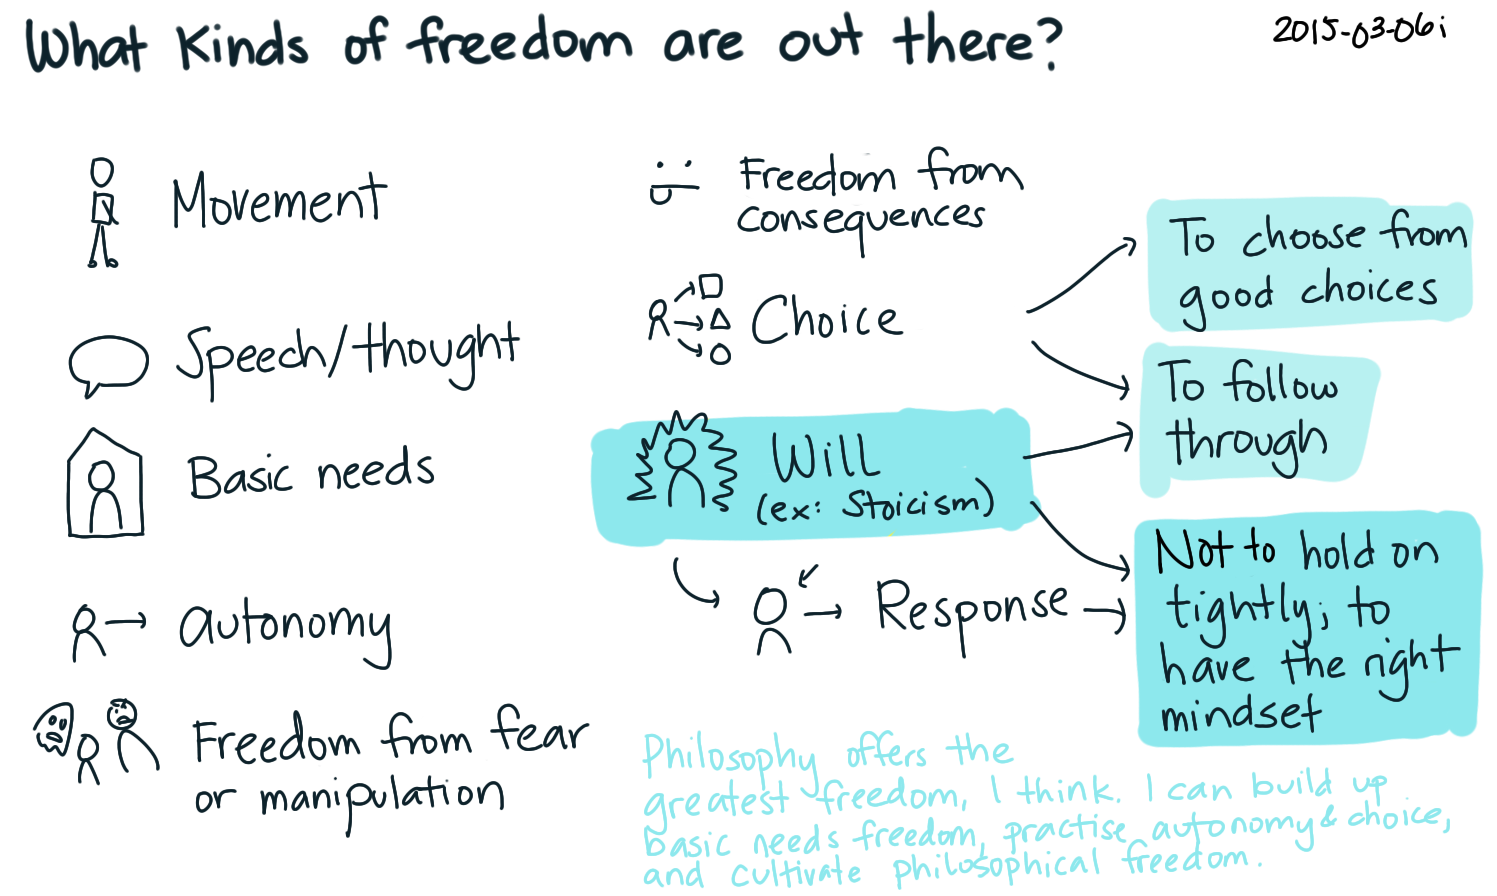 What Kinds of freedom are out there?
2015-03-06i
Movement
Speech/thought
Basic needs
autonomy
Freedom from fear
or manipulation
Freedom from
consequences
Choice
Will
(ex: Stoicism)
Response
To choose from
good choices
To follow
through
Not to hold on
tightly; to
have the right
mindset
Philosophy offers the
greatest freedom, I think. I can build up
basic needs freedom, practise autonomy & choice,
and cultivate philosophical freedom.